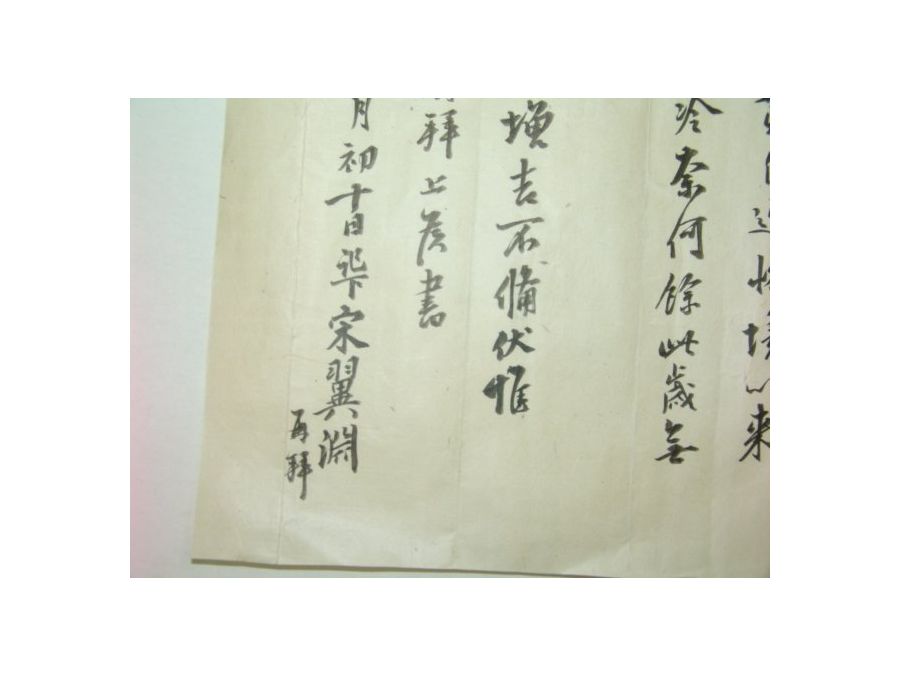 迫 境以來
冷奈何餘此歲無
增吉不備伏惟
拜上候書
月初十日 宋翼淵
再拜